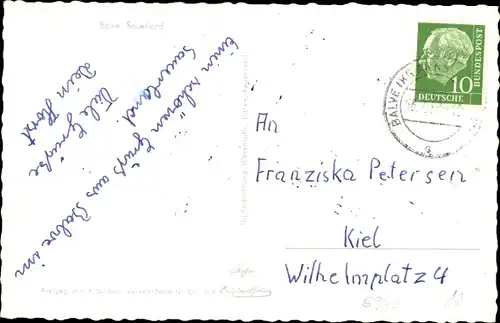 Balve Sauerland
Einen schönen Gruß aus Balve im
Sauerland
Viele Grüße
Dein Horst
10
DEUTSCHE
BUNDESPOST
BALVE
An
Franziska Petersen
Kiel
Wilhelmplatz 4